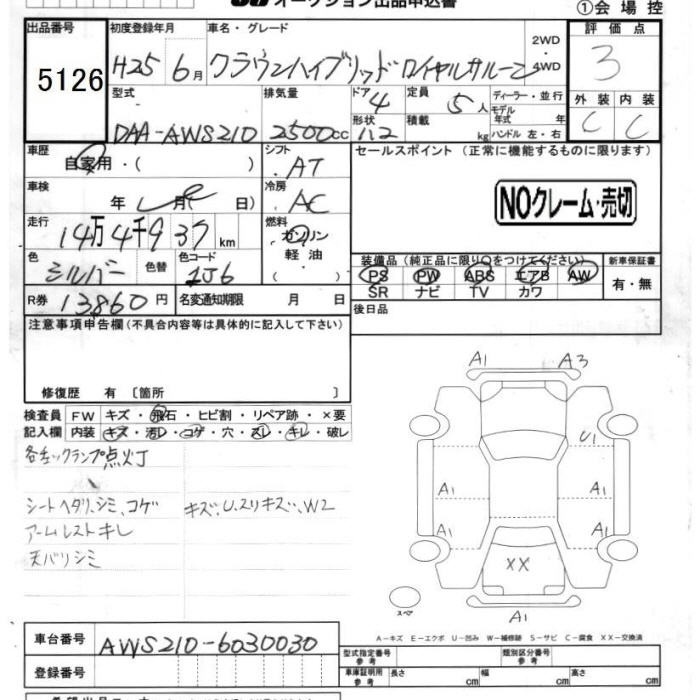 オークション出品申込書
①会場控
出品番号
5126
初度登録年月
H25 6月
車名・グレード
クラウンハイブリッド ロイヤルサルーン
2WD
・
4WD
評価点
3
型式
DAA-AWS210
排気量
2500cc
ドア 4
形状 112
定員 5人
積載 kg
ディーラー・並行
モデル
年式 年
ハンドル 左・右
外装 内装
C C
車歴
自家用・( )
シフト
AT
セールスポイント (正常に機能するものに限ります)
車検
年 月( 日)
冷房
AC
NOクレーム・売切
走行
14万4千937km
燃料
ガソリン
軽油
・( )
色
シルバー
色替
色コード
1J6
装備品 (純正品に限り○をつけてください)
PS PW ABS エアB AW
SR ナビ TV カワ
新車保証書
有・無
R券 13860円
名変通知期限 月 日
後日品
注意事項申告欄 (不具合内容等は具体的に記入して下さい)
修復歴 有 〔箇所 〕
検査員
記入欄
FW キズ・飛石・ヒビ割・リペア跡・×要
内装 キズ・汚レ・コゲ・穴・スレ・キレ・破レ
各チェックランプ点灯
シートヘタリ、シミ、コゲ
キズ、U、スリキズ、W2
アームレストキレ
天バリシミ
A1 A3
U1
A1 A1
A1 A1
XX
スペア
A1
A-キズ E-エクボ U-凹み W-補修跡 S-サビ C-腐食 XX-交換済
車台番号
AWS210-6030030
登録番号
型式指定番号
参考
類別区分番号
参考
車庫証明用
参考
長さ cm
幅 cm
高さ cm